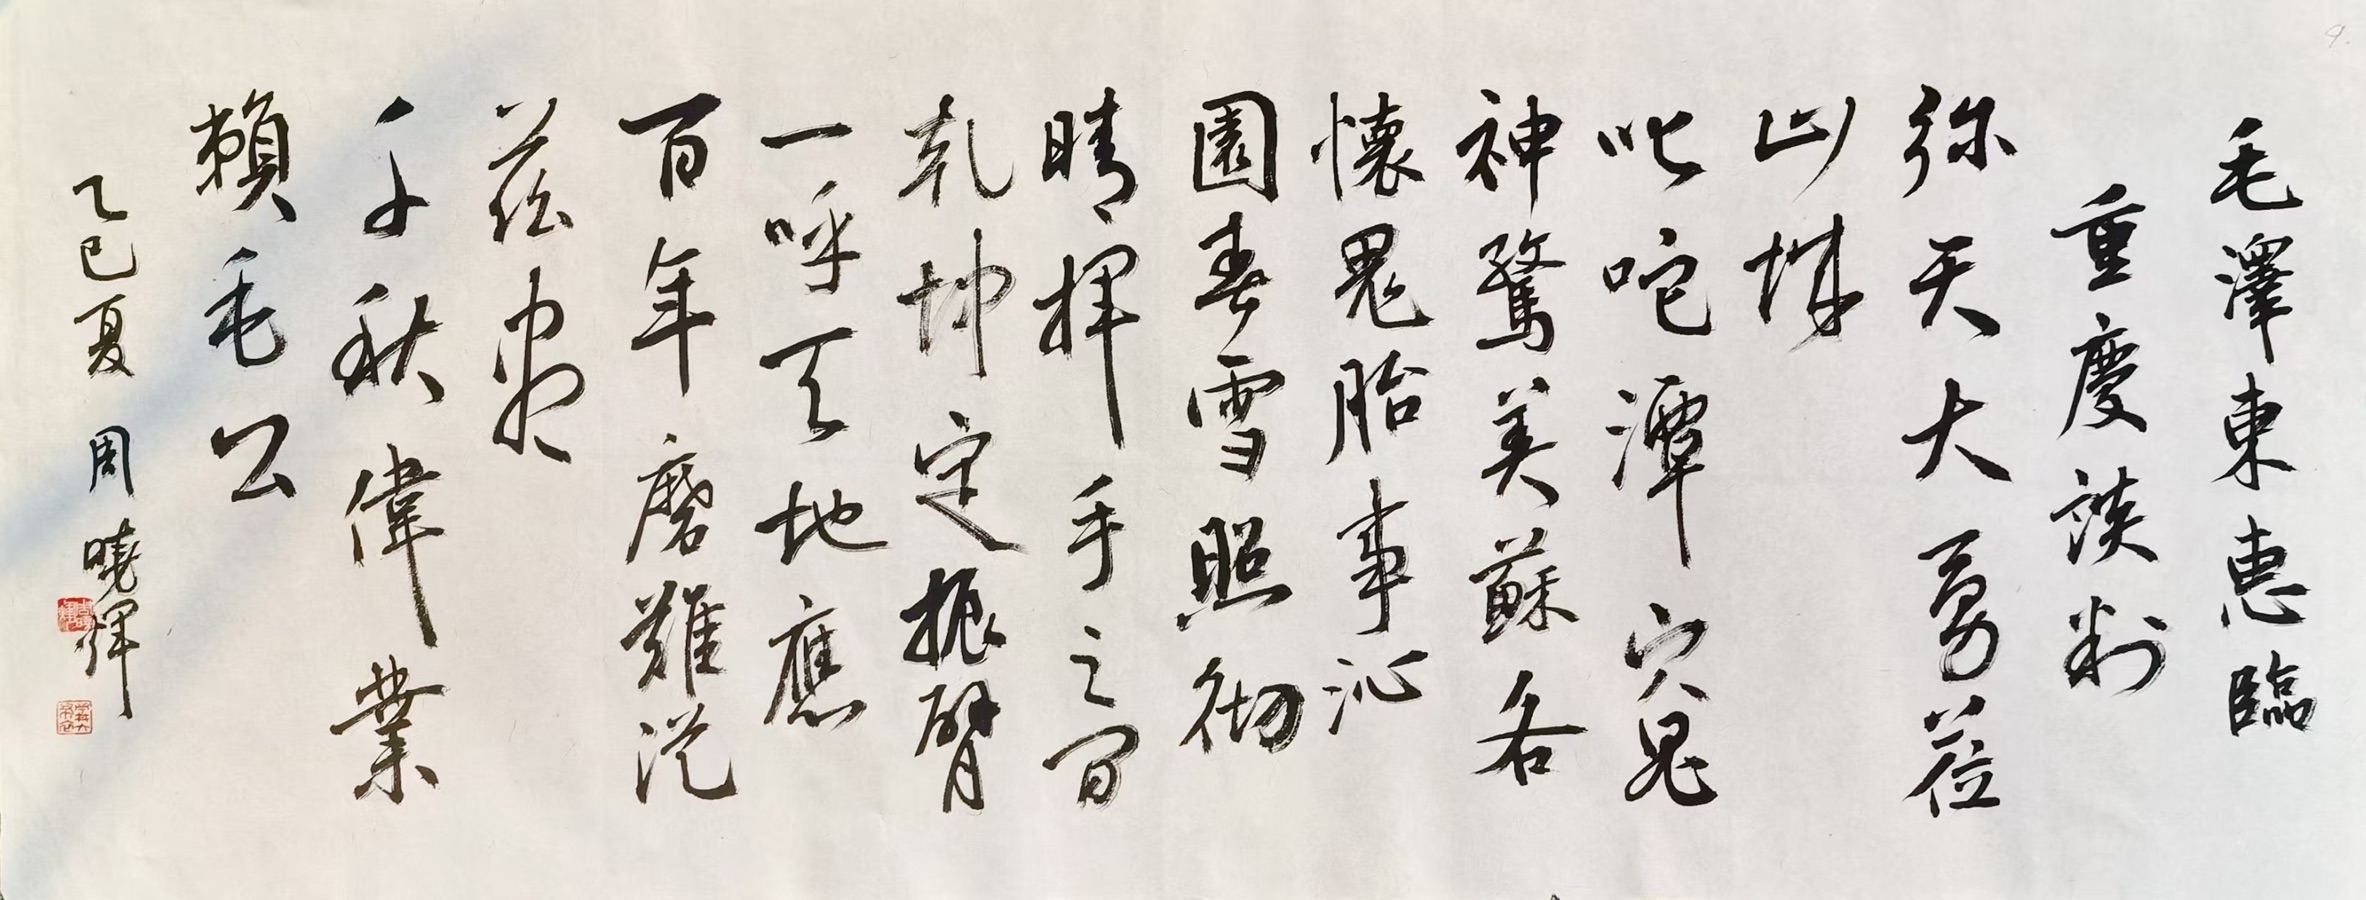 毛澤東惠臨
重慶談判
弥天大勇莅
山城
叱咤潭穴鬼
神驚美蘇各
懷鬼胎事沁
園春雪照彻
晴揮手之间
乾坤定振臂
一呼天地應
百年磨難從
兹盡
千秋偉業
賴毛公
乙巳夏 周曉輝